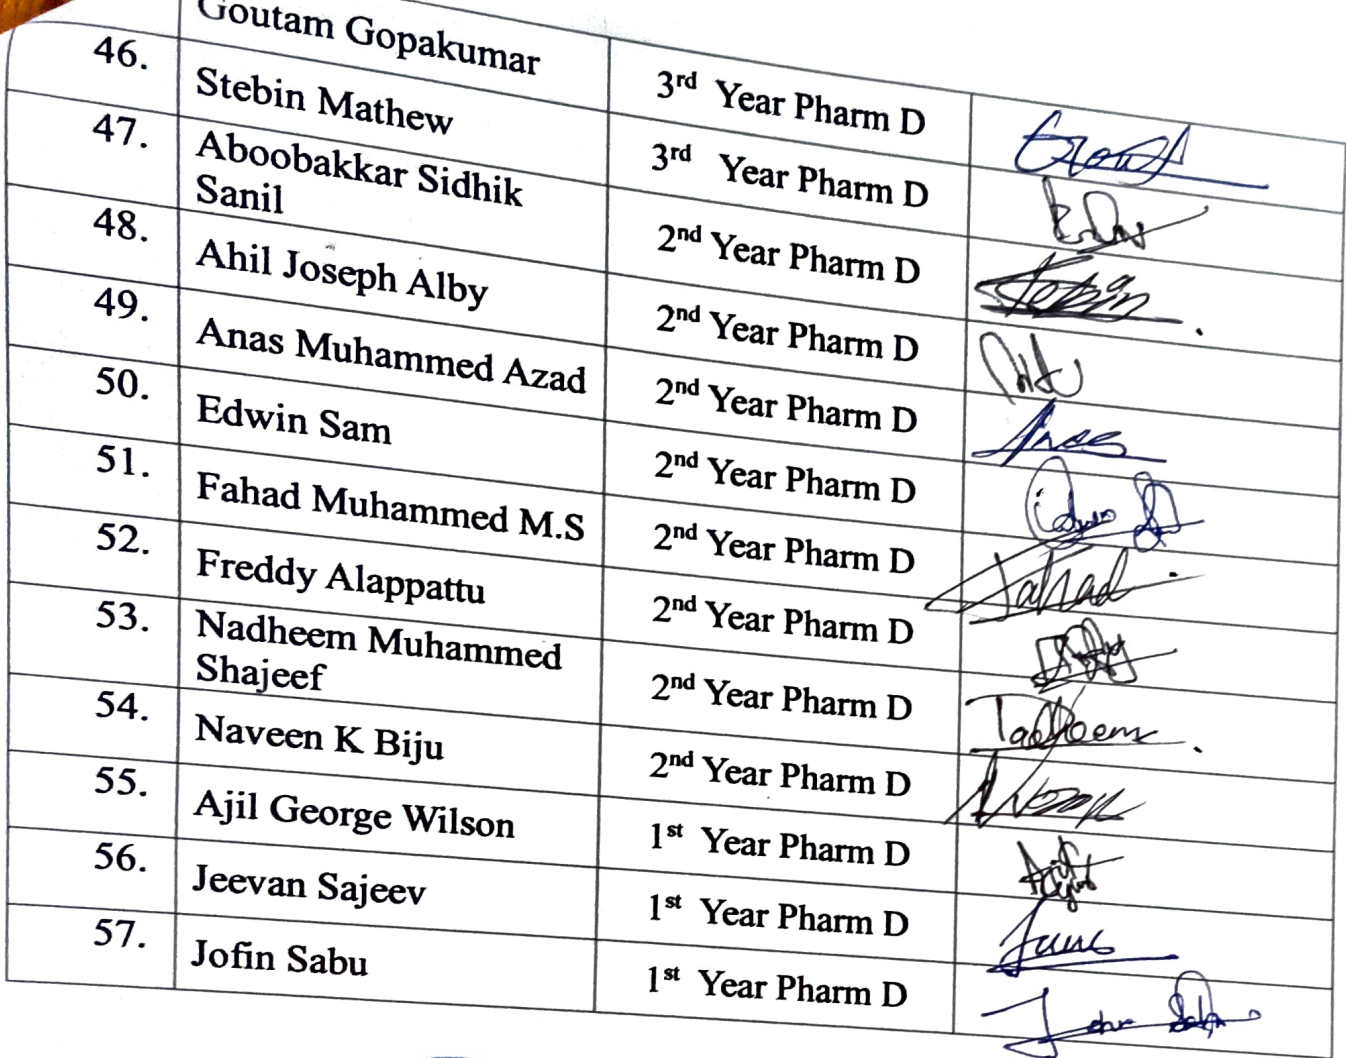 Goutam Gopakumar 3rd Year Pharm D
46. Stebin Mathew 3rd Year Pharm D
47. Aboobakkar Sidhik
Sanil 2nd Year Pharm D
48. Ahil Joseph Alby 2nd Year Pharm D
49. Anas Muhammed Azad 2nd Year Pharm D
50. Edwin Sam 2nd Year Pharm D
51. Fahad Muhammed M.S 2nd Year Pharm D Fahad
52. Freddy Alappattu 2nd Year Pharm D
53. Nadheem Muhammed
Shajeef 2nd Year Pharm D
54. Naveen K Biju 2nd Year Pharm D
55. Ajil George Wilson 1st Year Pharm D
56. Jeevan Sajeev 1st Year Pharm D
57. Jofin Sabu 1st Year Pharm D